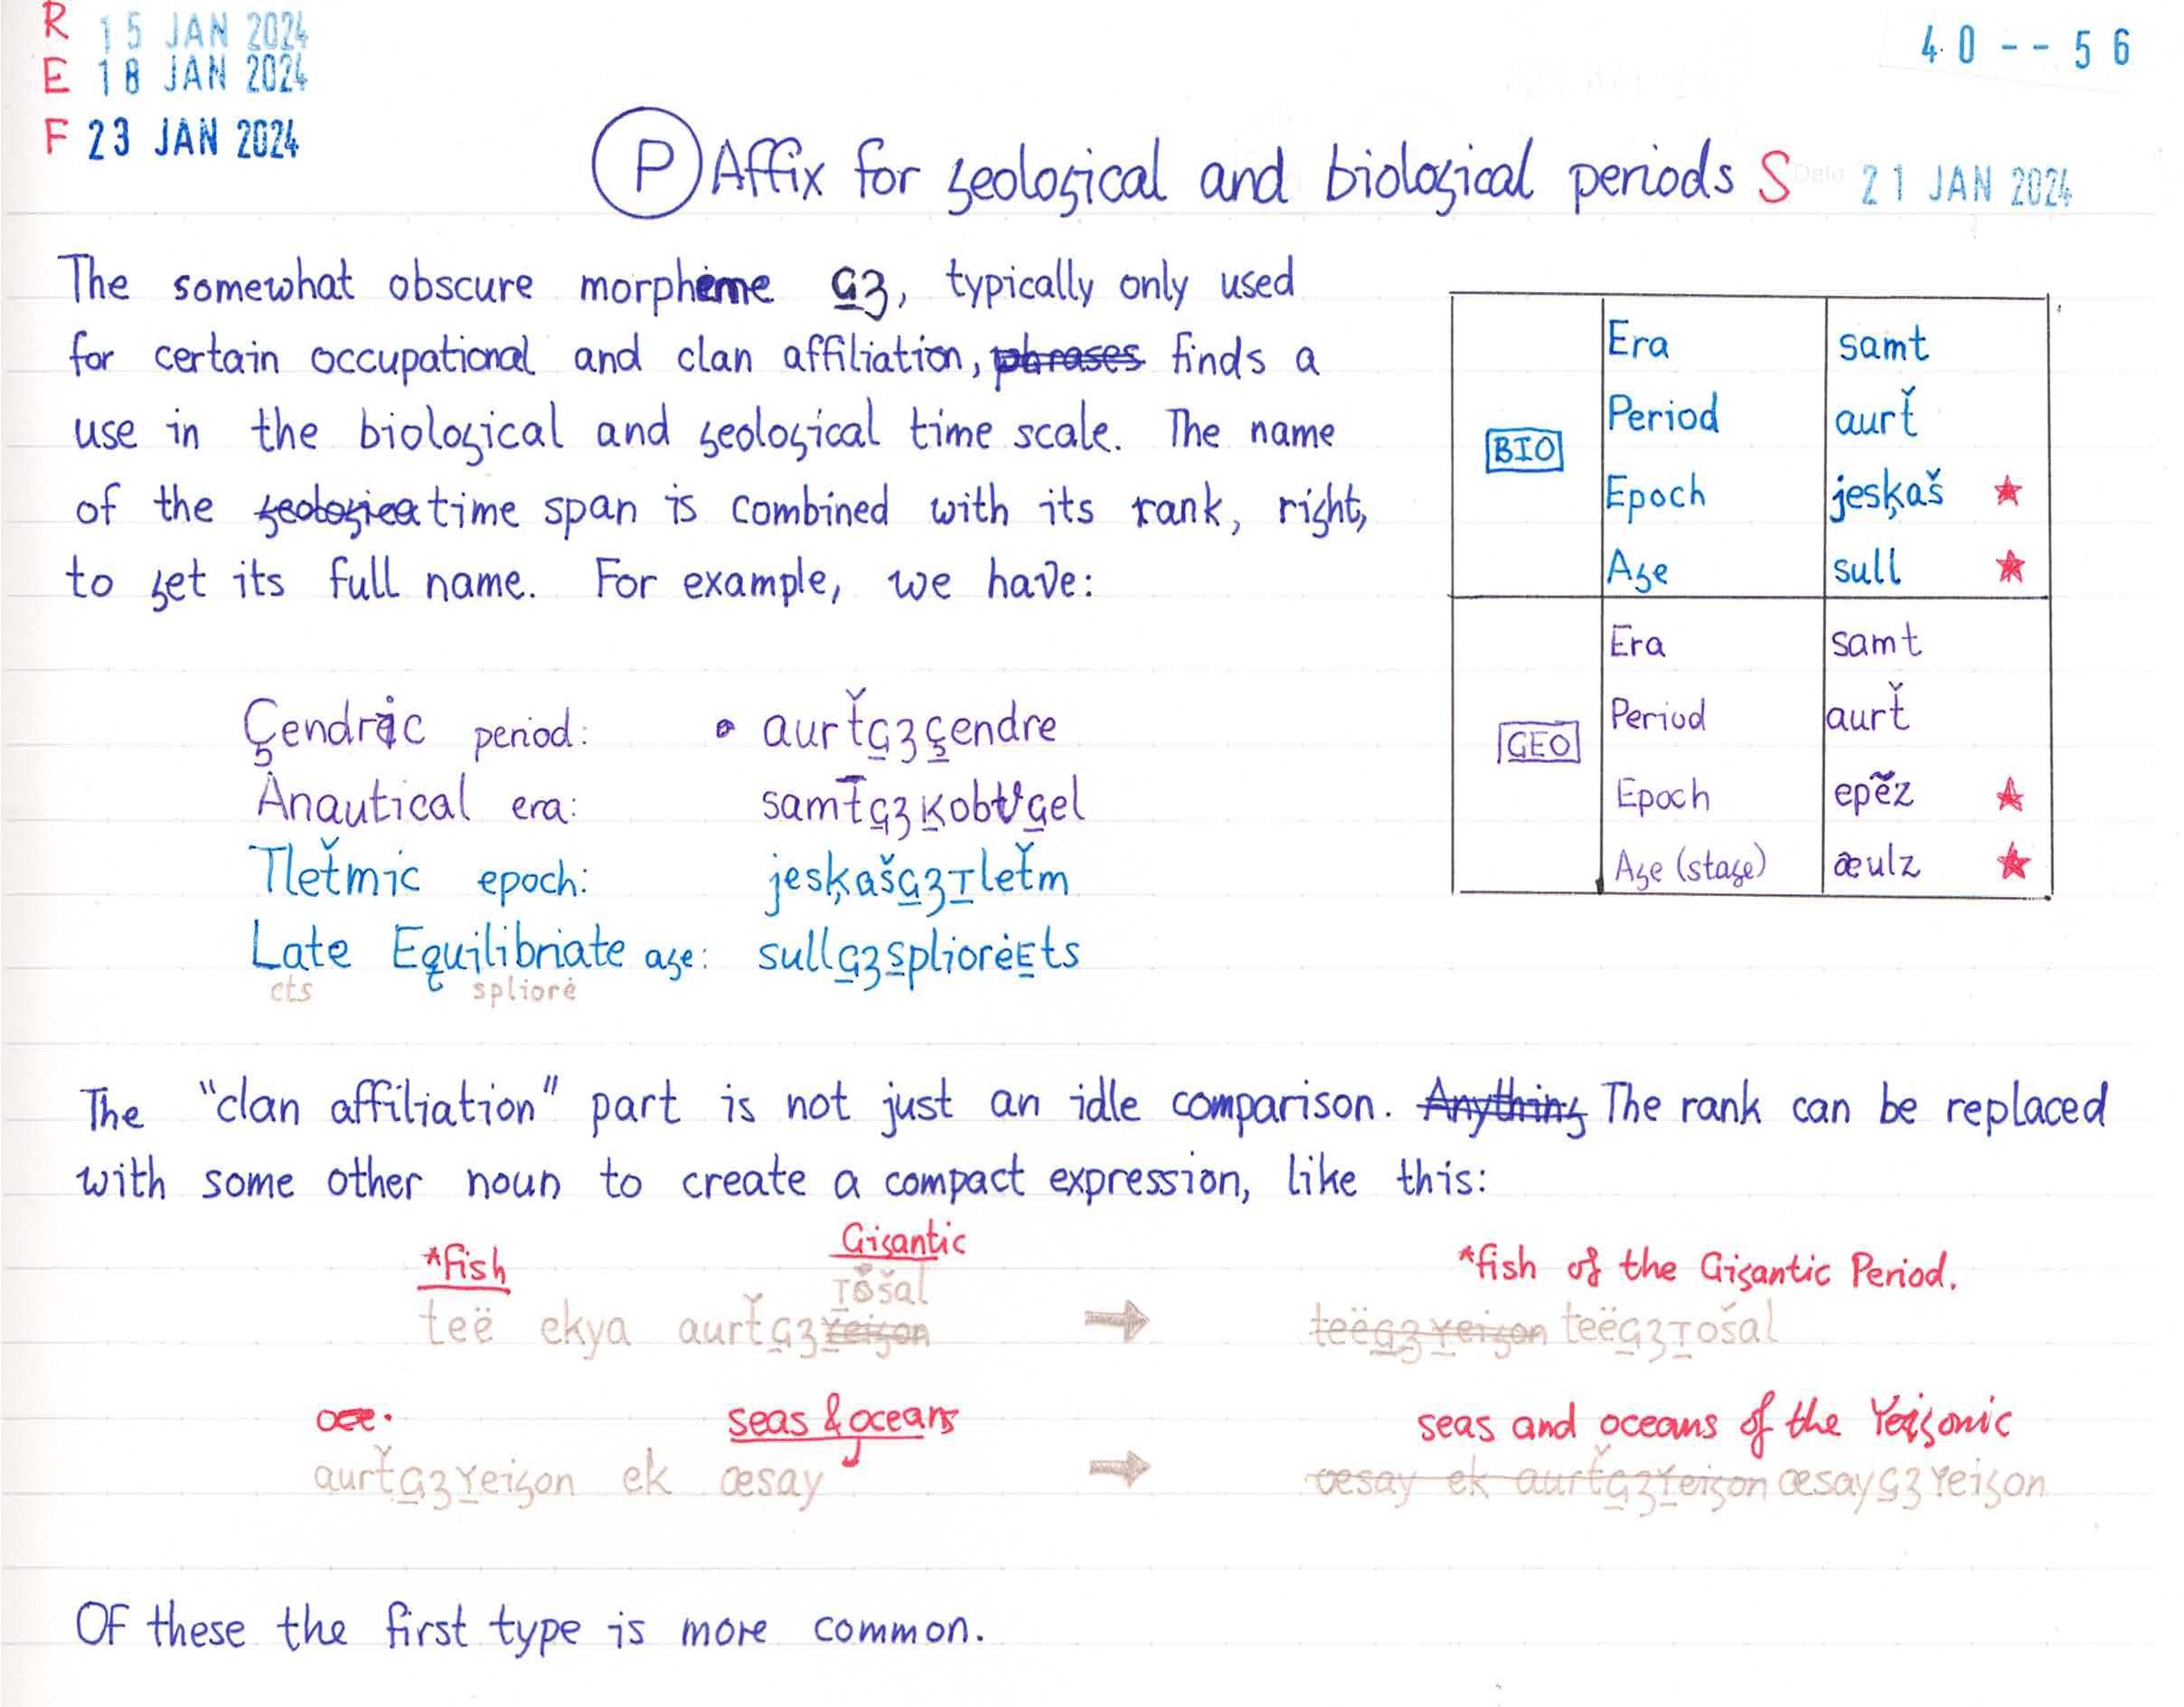 R 15 JAN 2024
E 18 JAN 2024
F 23 JAN 2024
40 -- 56
P Affix for geological and biological periods S 21 JAN 2024
The somewhat obscure morpheme G̱ʒ, typically only used
for certain occupational and clan affiliation, phrases finds a
use in the biological and geological time scale. The name
of the geologica time span is combined with its rank, right,
to get its full name. For example, we have:
BIO
Era samt
Period aurť
Epoch jesķaš ★
Age sull ★
GEO
Era samt
Period aurť
Epoch epěz ★
Age (stage) æulz ★
Çendric period: aurťG̱ʒç̱endre
Anautical era: G̱ʒ
Tleťmic epoch: jesķašG̱ʒṮleťm
Late Equilibriate age: sullG̱ʒs̱plioréE̱ts
ets splioré
The "clan affiliation" part is not just an idle comparison. Anything The rank can be replaced
with some other noun to create a compact expression, like this:
*fish Gigantic *fish of the Gigantic Period.
Ṯošal
teë ekya aurťG̱ʒY̱eigon → teëG̱ʒY̱eigon teëG̱ʒṮošal
seas & oceans seas and oceans of the Yeigonic
aurťG̱ʒY̱eigon ek æsay → æsay ek aurťG̱ʒY̱eigon æsayG̱ʒYeigon
Of these the first type is more common.